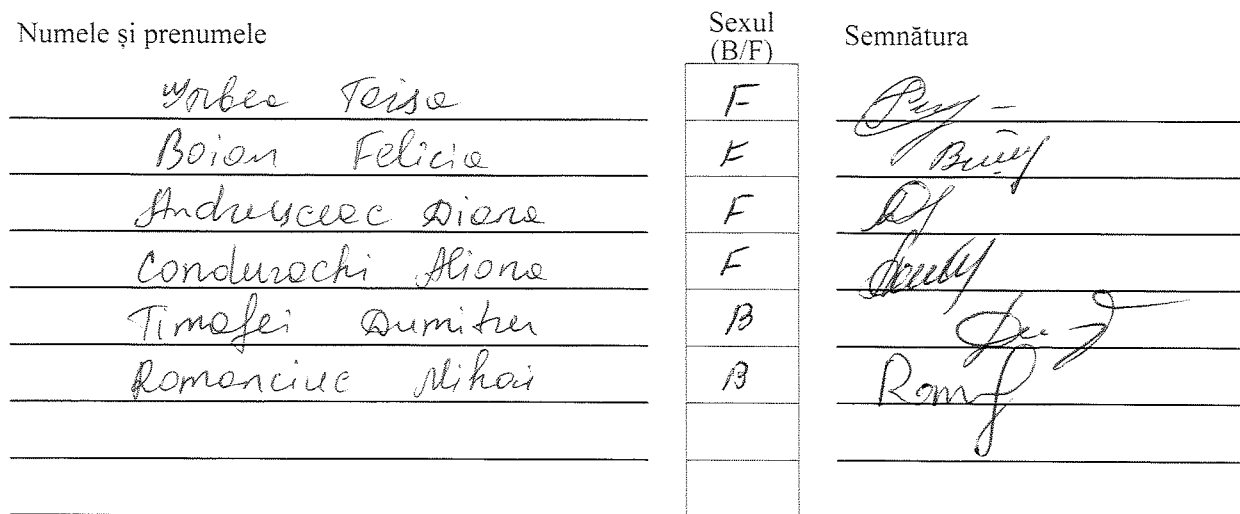 Numele și prenumele Sexul (B/F) Semnătura
Taisa F
Boian Felicia F
Diana F
Condurachi Aliona F
Timofei Dumitru B
Romanciuc Mihai B